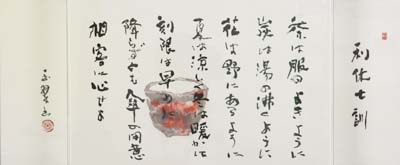 利休七訓
茶は服のよきように
炭は湯の沸くように
花は野にあるように
夏は涼しく冬は暖かに
刻限は早めに
降らずとも傘の用意
相客に心せよ